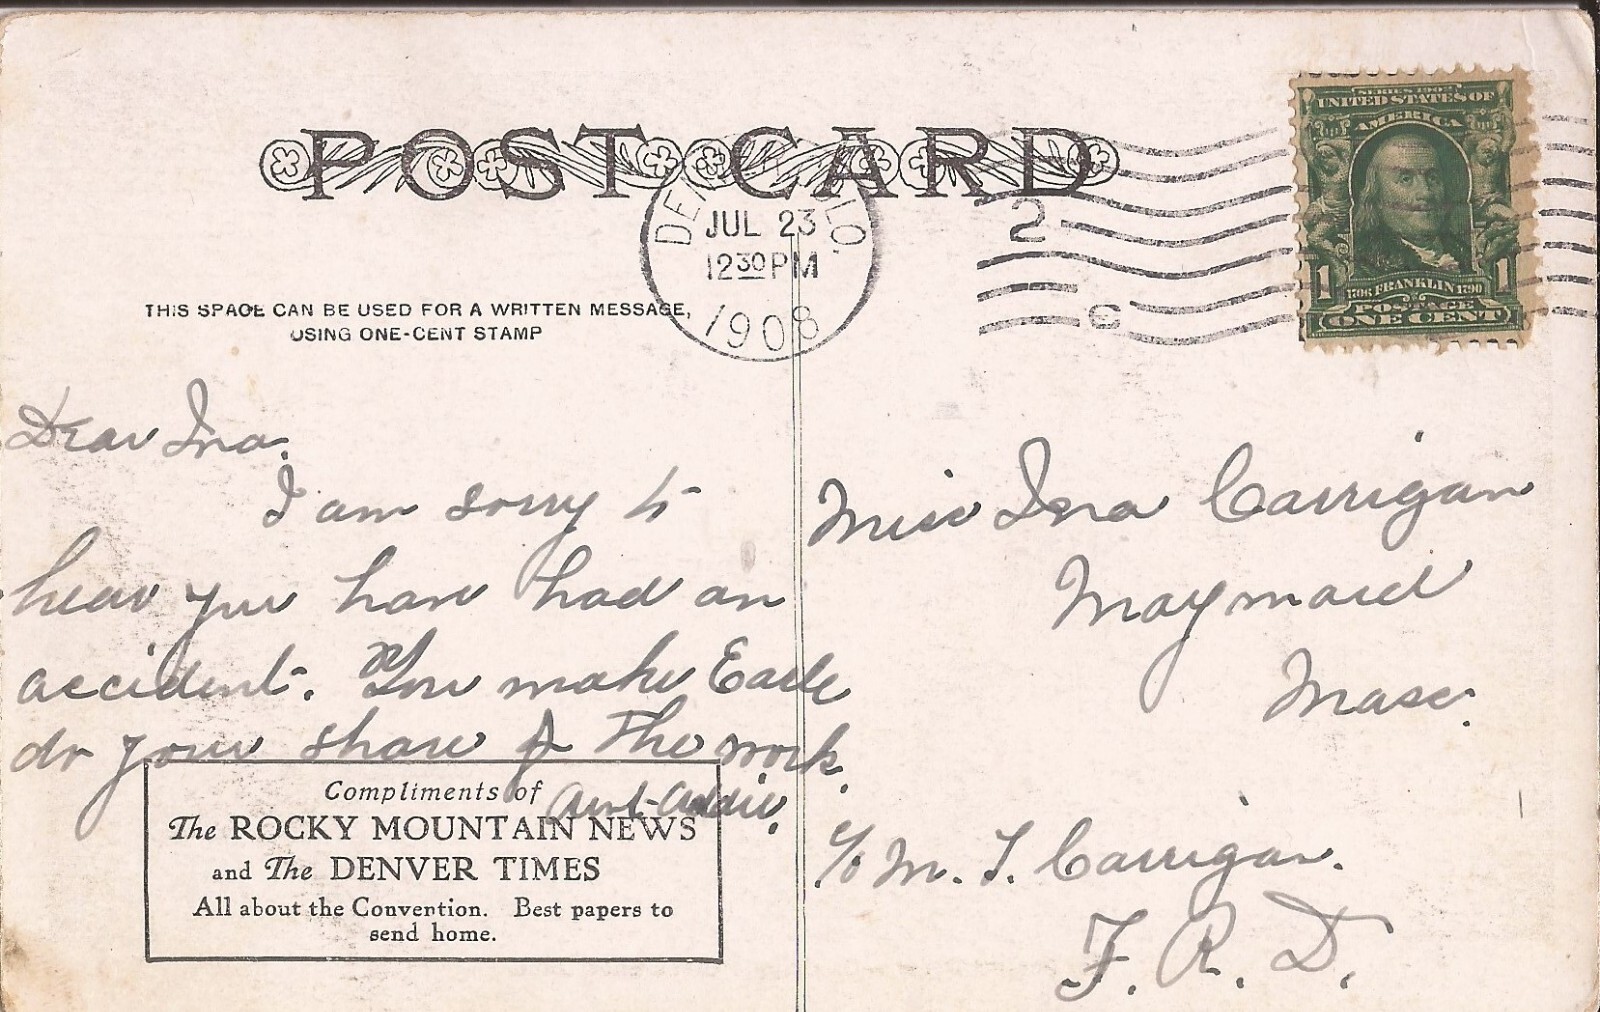 POST CARD
DENVER, COLO.
JUL 23
12 30 PM
1908
2
C
SERIES 1902
UNITED STATES OF
AMERICA
1 1
1706 FRANKLIN 1790
POSTAGE
ONE CENT
THIS SPACE CAN BE USED FOR A WRITTEN MESSAGE,
USING ONE-CENT STAMP
Dear Ina.
I am sorry to
hear you have had an
accident. You make Earle
do your share of the work.
Aunt Addie.
Compliments of
The ROCKY MOUNTAIN NEWS
and The DENVER TIMES
All about the Convention. Best papers to
send home.
Miss Ina Carrigan
Maynard
Mass.
c/o M. T. Carrigan.
F. R. D.